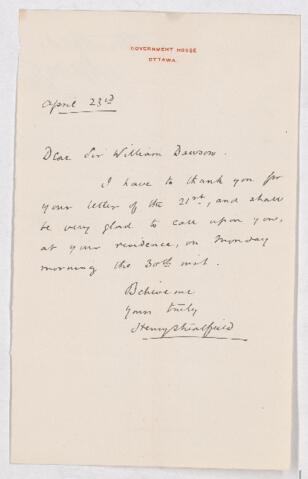 GOVERNMENT HOUSE
OTTAWA.
April 23rd
Dear Sir William Dawson.
I have to thank you for
your letter of the 21st, and shall
be very glad to call upon you,
at your residence, on Monday
morning the 30th inst.
Believe me
yours truly
Henry Streatfeild